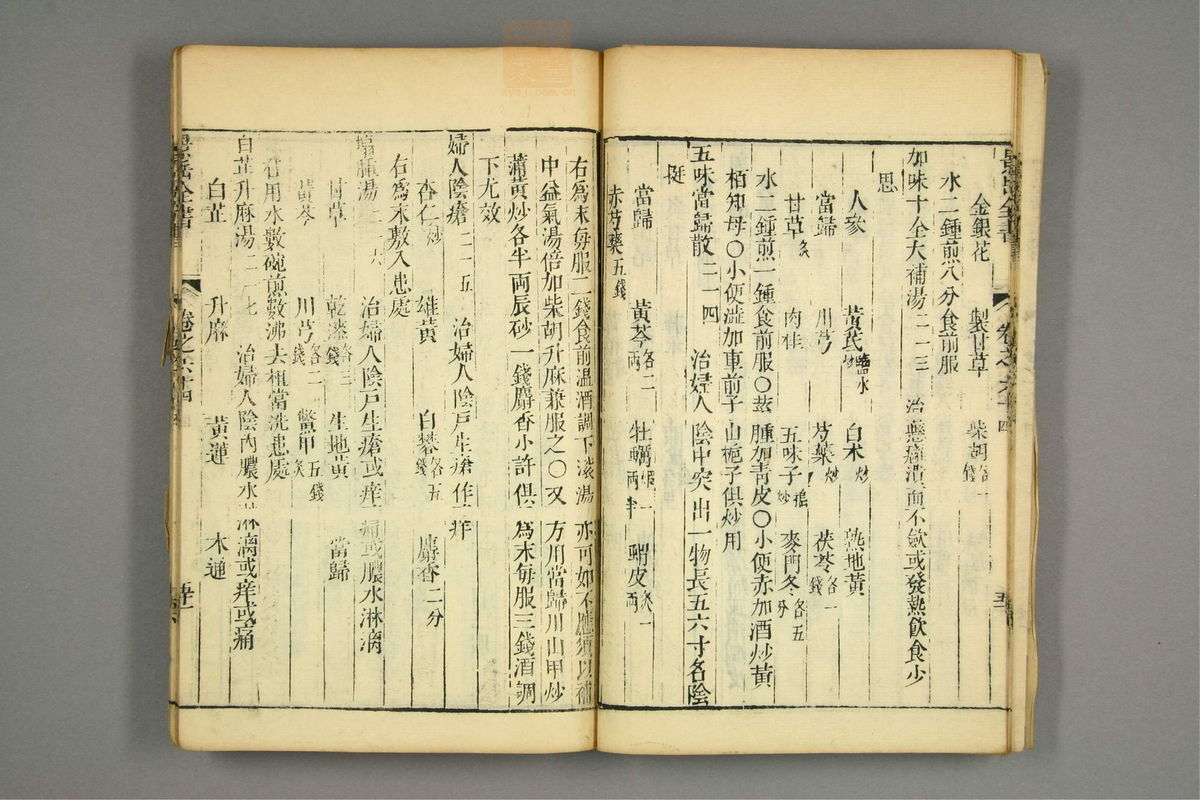 金銀花 製甘草 柴胡各一錢
水二鍾煎八分食前服
加味十全大補湯二一三 治懸癰潰而不斂或發熱飲食少
思
人參 黃芪鹽水炒 白朮炒 熟地黃
當歸 川芎 芍藥炒 茯苓各一錢
甘草炙 肉桂 五味子搗炒 麥門冬各五分
水二鍾煎一鍾食前服○莖腫加青皮○小便赤加酒炒黃
栢知母○小便澁加車前子山梔子俱炒用
五味當歸散二一四 治婦人陰中突出一物長五六寸名陰
挺
當歸 黃芩各二兩 牡蠣煅一兩半 蝟皮炙一兩
赤芍藥五錢
右為末每服二錢食前溫酒調下滚湯亦可如不應須以補
中益氣湯倍加柴胡升麻兼服之○又方川當歸川山甲炒
蒲黃炒各半兩辰砂一錢麝香少許俱為末每服三錢酒調
下尤效
婦人陰瘡二一五 治婦人陰戶生瘡作痒
杏仁炒 雄黃 白礬各五錢 麝香二分
右為末敷入患處
塌腫湯二一六 治婦人陰戶生瘡或痒或痛或膿水淋漓
甘草 乾漆各三錢 生地黃 當歸
黃芩 川芎各二錢 鱉甲炙五錢
右用水數碗煎數沸去柤當洗患處
白芷升麻湯二一七 治婦人陰內膿水淋漓或痒或痛
白芷 升麻 黃連 木通
景岳全書
卷之六十四